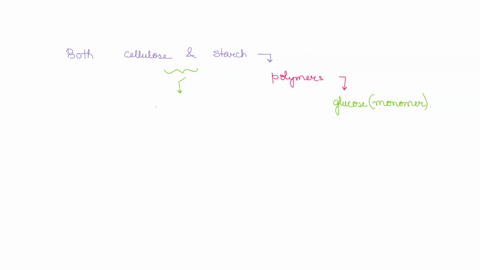 Both cellulose & starch
polymers
glucose (monomer).